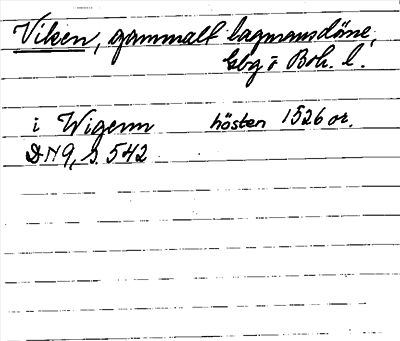 Viken, gammalt lagmansdöme,
Gbg o Boh. l.
i Wigenn hösten 1526 or.
DN 9, s. 542